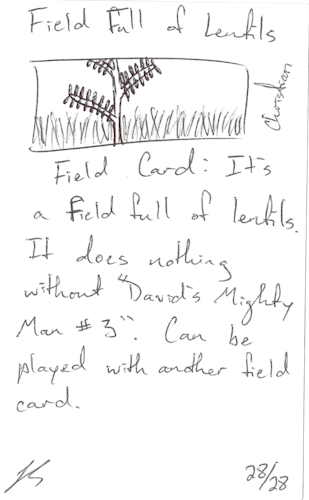 Field Full of Lentils
Christian
Field Card: It's
a Field full of lentils.
It does nothing
without "David's Mighty
Man #3". Can be
played with another field
card.
28/28